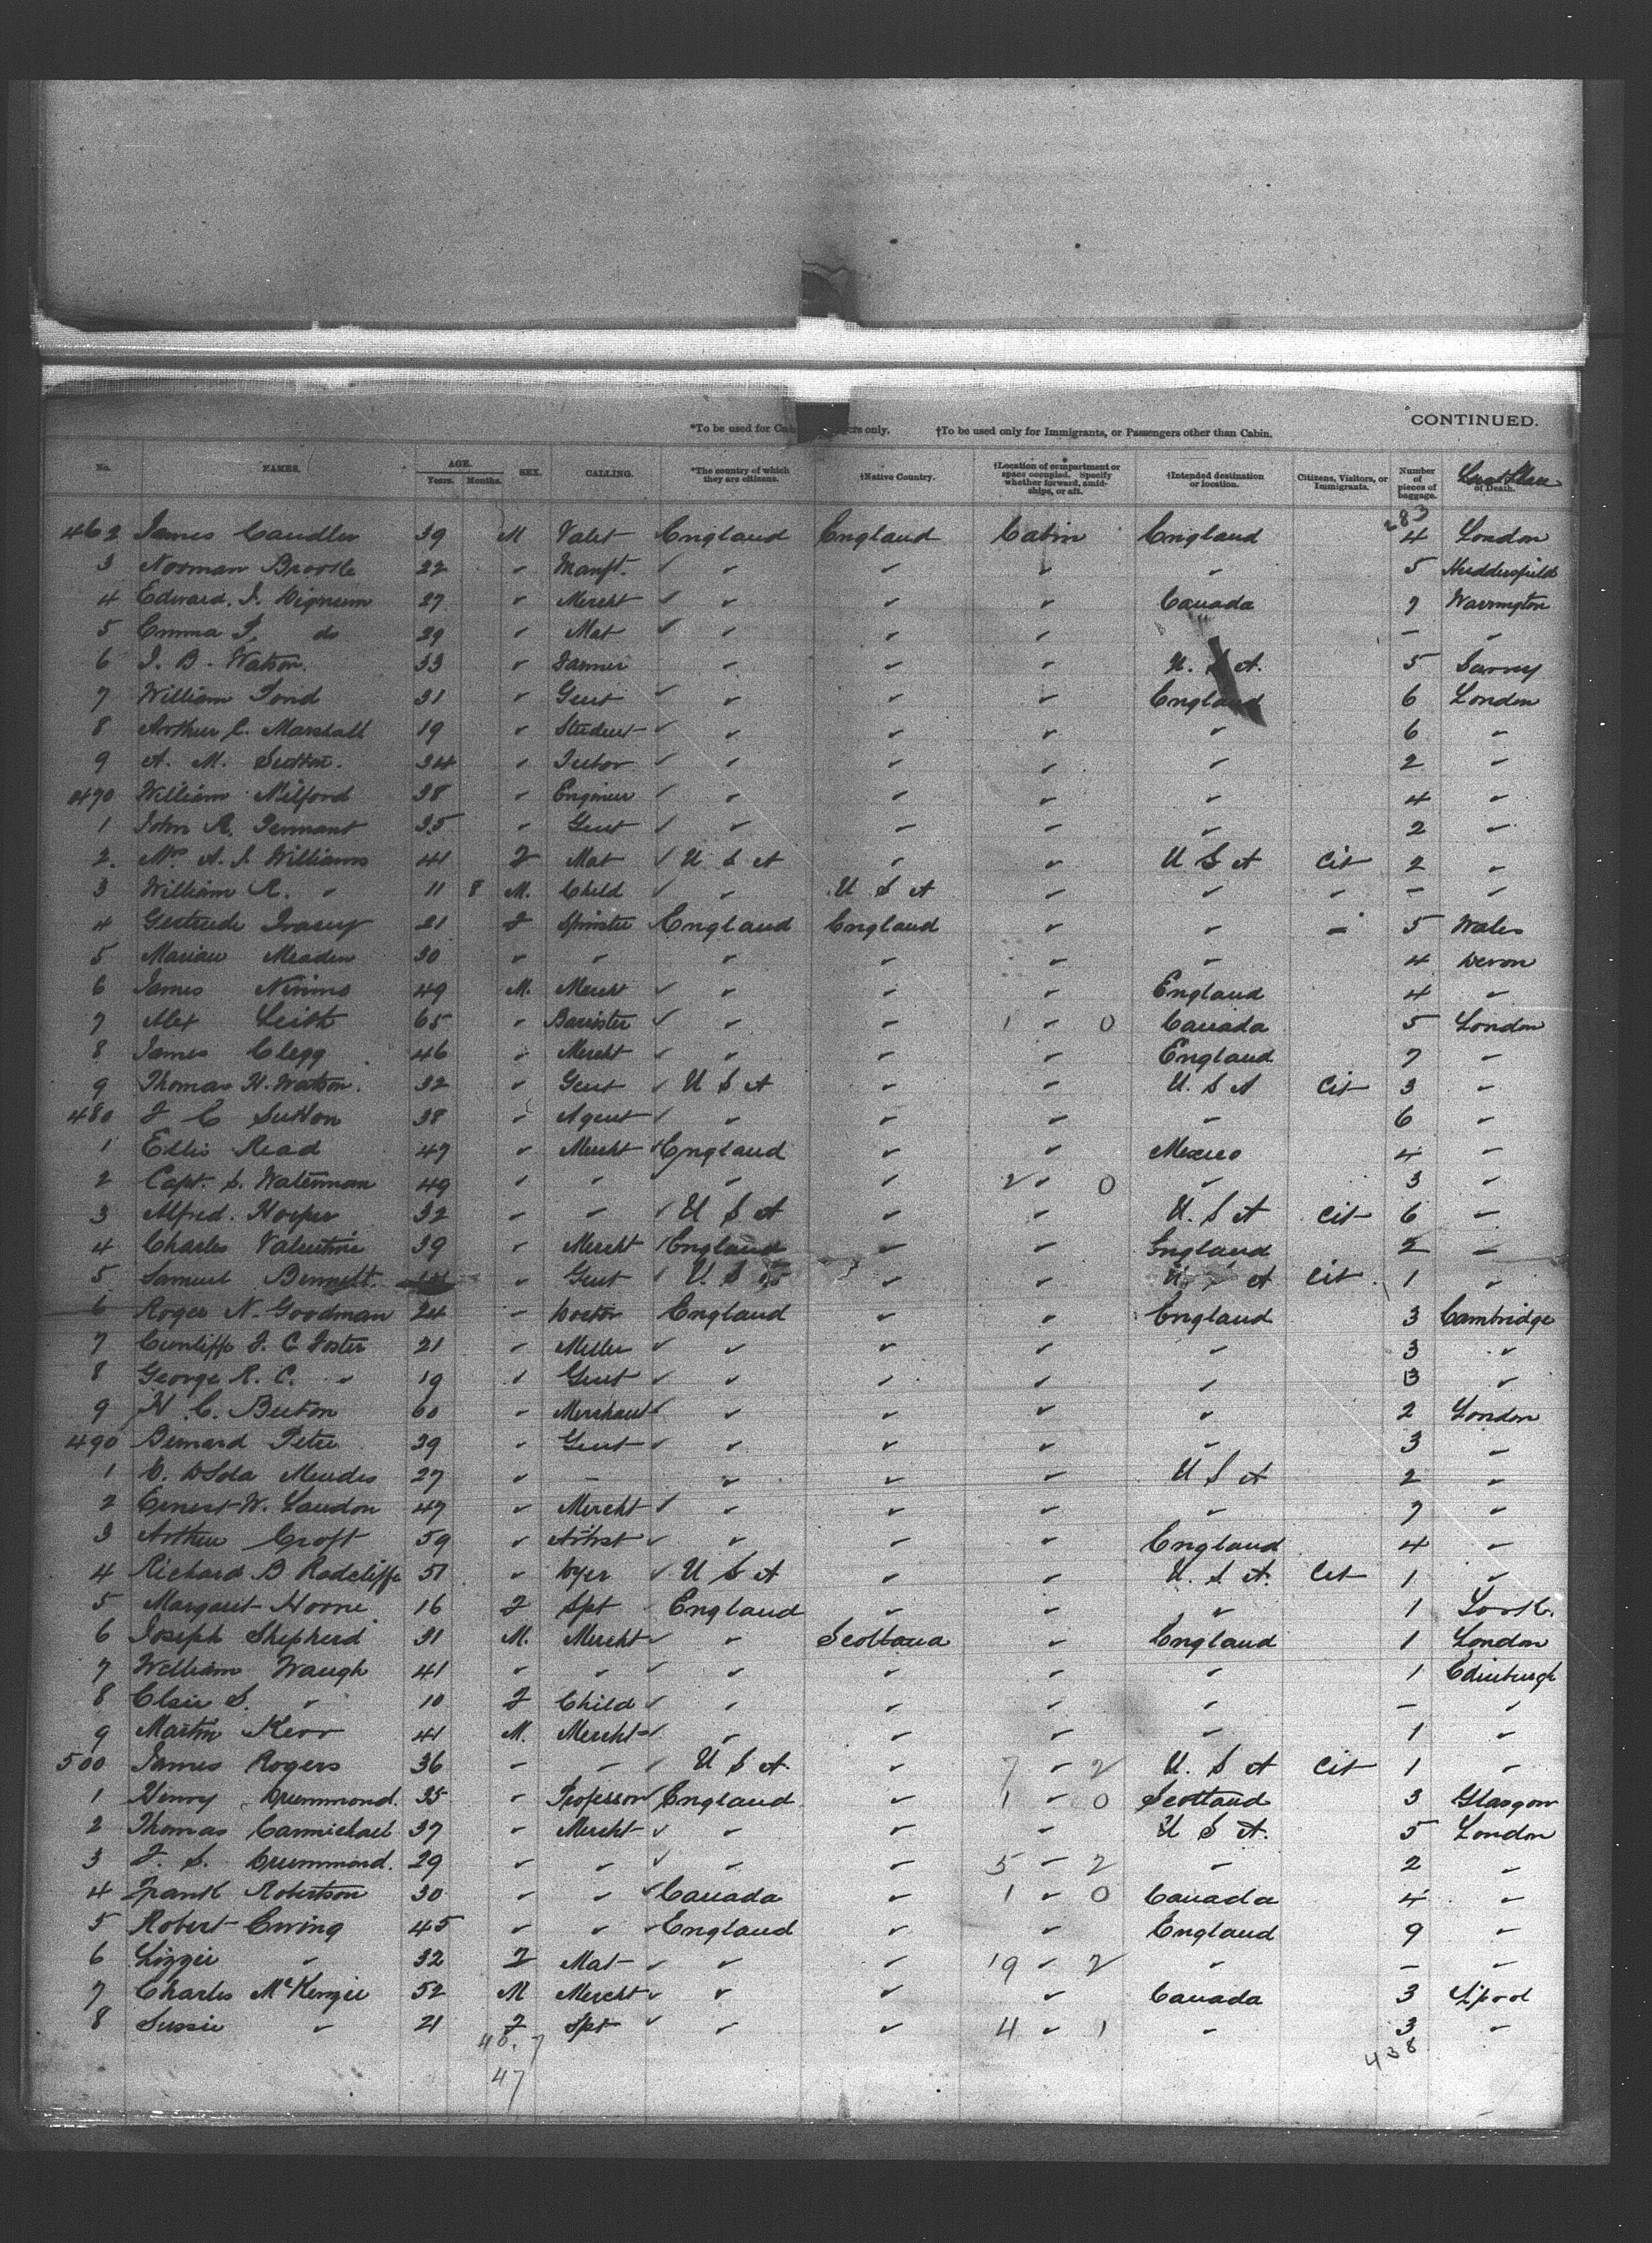 CONTINUED.
*To be used for Cab rs only. †To be used only for Immigrants, or Passengers other than Cabin.
No. NAMES. AGE. Years. Months. SEX. CALLING. *The country of which they are citizens. †Native Country. †Location of compartment or space occupied. Specify whether forward, amidships, or aft. †Intended destination or location. Citizens, Visitors, or Immigrants. Number of pieces of baggage. Last Place of Death.
283
462 James Candler 39 M Valet England England Cabin England 4 London
3 Norman 22 " Manft. ✓ " " " " 5 Huddersfield
4 Edward. J. Dignum 27 " Mercht ✓ " " " Canada 7 Warrington
5 Emma J, do 29 " Mat ✓ " " " – "
6 J. B. Watson. 33 " Farmer " " " U. S A. 5
7 William Pond 31 " Gent ✓ " " " England 6 London
8 Arthur C. Marshall 19 " Student ✓ " " " " 6 "
9 A. M. Sutton. 34 " Tutor ✓ " " " " 2 "
470 William Milford 38 " Engineer ✓ " " " " 4 "
1 John R. Tennant 35 " Gent ✓ " " " " 2 "
2. Mrs A. J. Williams 41 F Mat ✓ U S A " " U S A Cit 2 "
3 William R. " 11 8 M. Child ✓ " U S A " " " – "
4 Gertrude 21 F Spinster England England " " – 5 Wales
5 Marian Meaden 30 " " " " " " 4 Devon
6 James Nimmo 49 M. Mercht ✓ " " " England 4 "
7 Alex Leith 65 " Barrister ✓ " " 1 " 0 Canada 5 London
8 James Clegg 46 " Mercht ✓ " " " England 7 "
9 Thomas H. Watson. 32 " Gent ✓ U S A " " U. S A Cit 3 "
480 F C Sutton 38 " Agent ✓ " " " " 6 "
1 Ellis Read 47 " Mercht ✓ England " " Mexico 4 "
2 Capt. S. Waterman 49 " " " " 2 " 0 " 3 "
3 Alfred. Hooper 32 " " ✓ U S A " " U. S A Cit 6 "
4 Charles Valentine 39 " Mercht ✓ England " " England 2 "
5 Samuel Bennett. " Gent ✓ U. S " " U A Cit. 1 "
6 Roger N. Goodman 24 " Doctor England " " England 3 Cambridge
7 Cunliffe F. C Foster 21 " Miller ✓ " " " " 3 "
8 George R. C. " 19 " Gent ✓ " " " " 3 "
9 H. C. Beeton 60 " Merchant ✓ " " " " 2 London
490 Bernard Petre 39 " Gent ✓ " " " " 3 "
1 D. DSola Mendes 27 " – " " " U S A 2 "
2 Ernest W. Landon 47 " Mercht ✓ " " " " 7 "
3 Arthur Croft 59 " Artist ✓ " " " England 4 "
4 Richard B Radcliffe 51 " Dyer ✓ U S A " " U. S A. Cit 1 "
5 Margaret Horne 16 F Spt England " " " 1
6 Joseph Shepherd 31 M. Mercht ✓ " Scotland " England 1 London
7 William Waugh 41 " " ✓ " " " " 1 Edinburgh
8 Clair S. " 10 F Child ✓ " " " " – "
9 Martin Kerr 41 M. Mercht ✓ " " " " 1 "
500 James Rogers 36 " " ✓ U S A. " 7 " 2 U. S A Cit 1 "
1 Henry Drummond. 35 " Professor England " 1 " 0 Scotland 3 Glasgow
2 Thomas Carmichael 37 " Mercht ✓ " " " U S A. 5 London
3 F. S. Drummond. 29 " " ✓ " " 5 " 2 " 2 "
4 Frank Robertson 30 " " ✓ Canada " 1 " 0 Canada 4 "
5 Robert Ewing 45 " " ✓ England " " England 9 "
6 Lizzie " 32 F Mat ✓ " " 19 " 2 " – "
7 Charles McKenzie 52 M Mercht ✓ " " " Canada 3 Lpool
8 Sussie " 21 F Spt ✓ " " 4 " 1 " 3 "
40. 7 438
47